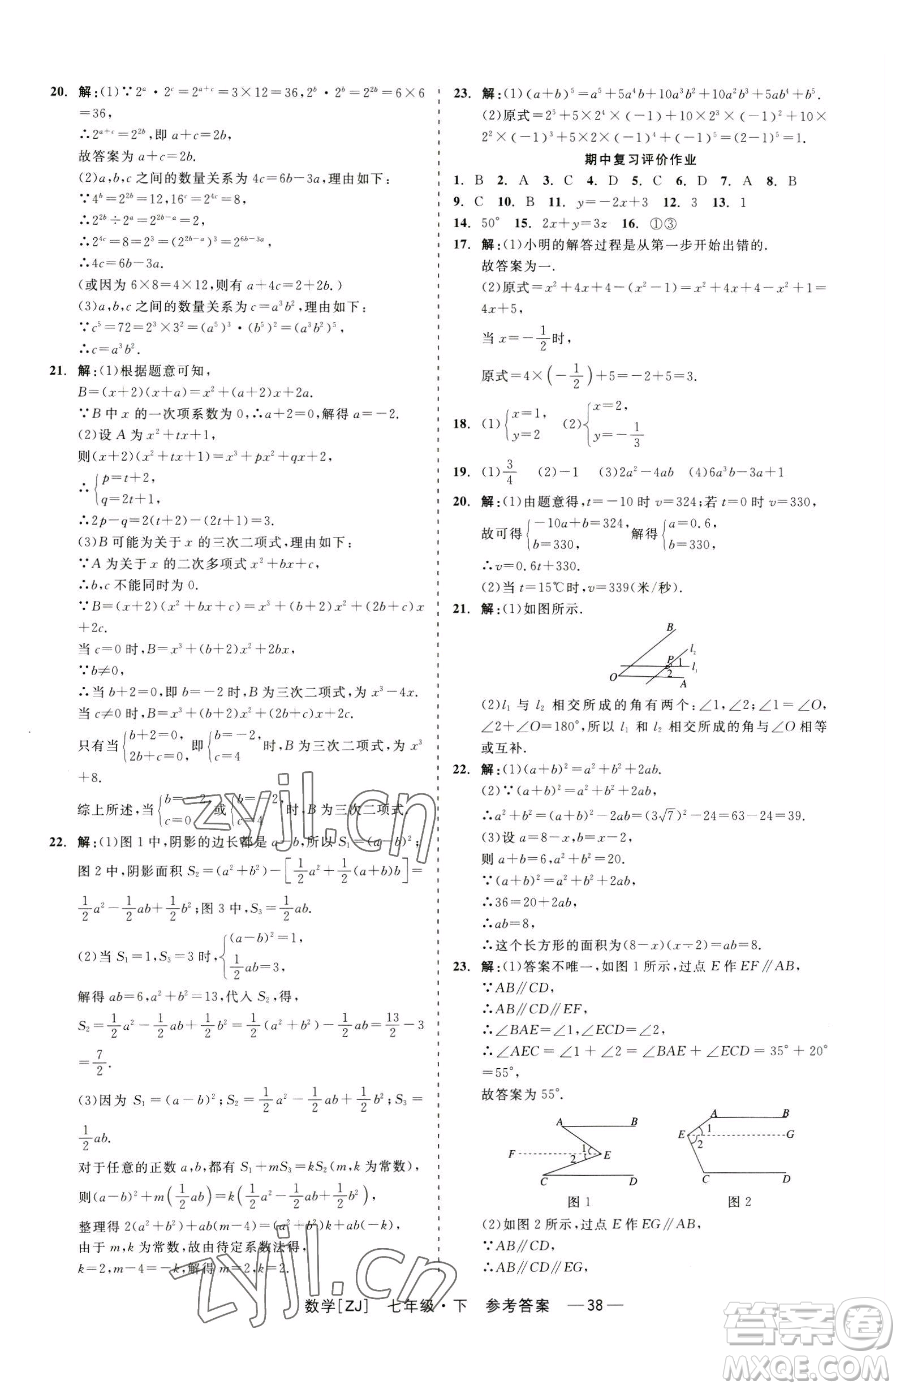 20. 解:(1)∵2ᵃ·2ᶜ=2ᵃ⁺ᶜ=3×12=36,2ᵇ·2ᵇ=2²ᵇ=6×6
=36,
∴2ᵃ⁺ᶜ=2²ᵇ,即a+c=2b.
故答案为a+c=2b.
(2)a,b,c之间的数量关系为4c=6b-3a,理由如下:
∵4ᵇ=2²ᵇ=12,16ᶜ=2⁴ᶜ=8,
∴2²ᵇ÷2ᵃ=12÷3=4=2²ᵇ⁻ᵃ,
∴2⁴ᶜ=8=2³=(2²ᵇ⁻ᵃ)³=2⁶ᵇ⁻³ᵃ,
∴4c=6b-3a.
(或因为6×8=4×12,故有a+c=2b.)
(3)a,b,c之间的数量关系为c=a³b²,理由如下:
∵c⁵=72=2³×3²=(a⁵)³·(b⁵)²=(a³b²)⁵,
∴c=a³b².
21. 解:(1)根据题意可知,
B=(x+2)(x+a)=x²+(a+2)x+2a.
∵B中x的一次项系数为0,∴a+2=0,解得a=-2.
(2)设A为x²+tx+1,
则(x+2)(x²+tx+1)=x³+px²+qx+2,
∴{p=t+2, q=2t+1,
∴2p-q=2(t+2)-(2t+1)=3.
(3)B可能为关于x的三次二项式,理由如下:
∵A为关于x的二次多项式x²+bx+c,
∴b,c不能同时为0.
∵B=(x+2)(x²+bx+c)=x³+(b+2)x²+(2b+c)x
+2c.
当c=0时,B=x³+(b+2)x²+2bx.
∵b≠0,
∴只有当b+2=0,即b=-2时,B为三次二项式,为x³-4x.
当c≠0时,B=x³+(b+2)x²+(2b+c)x+2c.
只有当{b+2=0, 2b+c=0,即{b=-2, c=4时,B为三次二项式,为x³
+8.
综上所述,当{b=-2, c=0或{b=-2, c=4时,B为三次二项式.
22. 解:(1)图1中,阴影的边长都是a-b,所以S₁=(a-b)²;
图2中,阴影面积S₂=(a²+b²)-[1/2a²+1/2(a+b)b]=
1/2a²-1/2ab+1/2b²;图3中,S₃=1/2ab.
(2)当S₁=1,S₃=3时,{(a-b)²=1, 1/2ab=3,
解得ab=6,a²+b²=13,代入S₂得,
S₂=1/2a²-1/2ab+1/2b²=1/2(a²+b²)-1/2ab=13/2-3
=7/2.
(3)因为S₁=(a-b)²,S₂=1/2a²-1/2ab+1/2b²,S₃=
1/2ab.
对于任意的正数a,b,都有S₁+mS₃=kS₂(m,k为常数),
则(a-b)²+m(1/2ab)=k(1/2a²-1/2ab+1/2b²),
整理得2(a²+b²)+ab(m-4)=k(a²+b²)-kab,
由于m,k为常数,故由待定系数法得,
k=2,m-4=-k,解得m=2,k=2.
23. 解:(1)(a+b)⁵=a⁵+5a⁴b+10a³b²+10a²b³+5ab⁴+b⁵.
(2)原式=2⁵+5×2⁴×(-1)+10×2³×(-1)²+10×
2²×(-1)³+5×2×(-1)⁴+(-1)⁵=(2-1)⁵=1.
期中复习评价作业
1. B 2. A 3. C 4. D 5. C 6. D 7. A 8. B
9. C 10. B 11. y=-2x+3 12. 3 13. 1
14. 50° 15. 2x+y=3z 16. ①③
17. 解:(1)小明的解答过程是从第一步开始出错的.
故答案为一.
(2)原式=x²+4x+4-(x²-1)=x²+4x+4-x²+1=
4x+5,
当x=-1/2时,
原式=4×(-1/2)+5=3.
18. (1){x=1, y=2 (2){x=2, y=-1/3
19. (1)3/4 (2)-1 (3)2a²-4ab (4)6a³b-3a+1
20. 解:(1)由题意得,t=-10时v=324;若t=0时,v=330,
故可得{-10a+b=324, b=330,解得{a=0.6, b=330,
∴v=0.6t+330.
(2)当t=15℃时,v=339(米/秒).
21. 解:(1)如图所示.
B
l₂
P 1
2 l₁
O A
(2)l₁与l₂相交所成的角有两个:∠1,∠2;∠1=∠O,
∠2+∠O=180°,所以l₁和l₂相交所成的角与∠O相等
或互补.
22. 解:(1)(a+b)²=a²+b²+2ab.
(2)∵(a+b)²=a²+b²+2ab,
∴a²+b²=(a+b)²-2ab=(3√7)²-24=63-24=39.
(3)设a=8-x,b=x-2,
则a+b=6,a²+b²=20,
∵(a+b)²=a²+b²+2ab,
∴36=20+2ab,
∴ab=8,
∴这个长方形的面积为(8-x)(x-2)=ab=8.
23. 解:(1)答案不唯一,如图1所示,过点E作EF∥AB,
∵AB∥CD,
∴AB∥CD∥EF,
∴∠BAE=∠1,∠ECD=∠2,
∴∠AEC=∠1+∠2=∠BAE+∠ECD=35°+20°
=55°,
故答案为55°.
A B A B
F 1 2 E E 1 2 G
C D C D
图1 图2
(2)如图2所示,过点E作EG∥AB,
∵AB∥CD,
∴AB∥CD∥EG,
数学[ZJ] 七年级·下 参考答案 —38—
zyjl.cn
zyjl.cn
答案圈
MXQE.COM